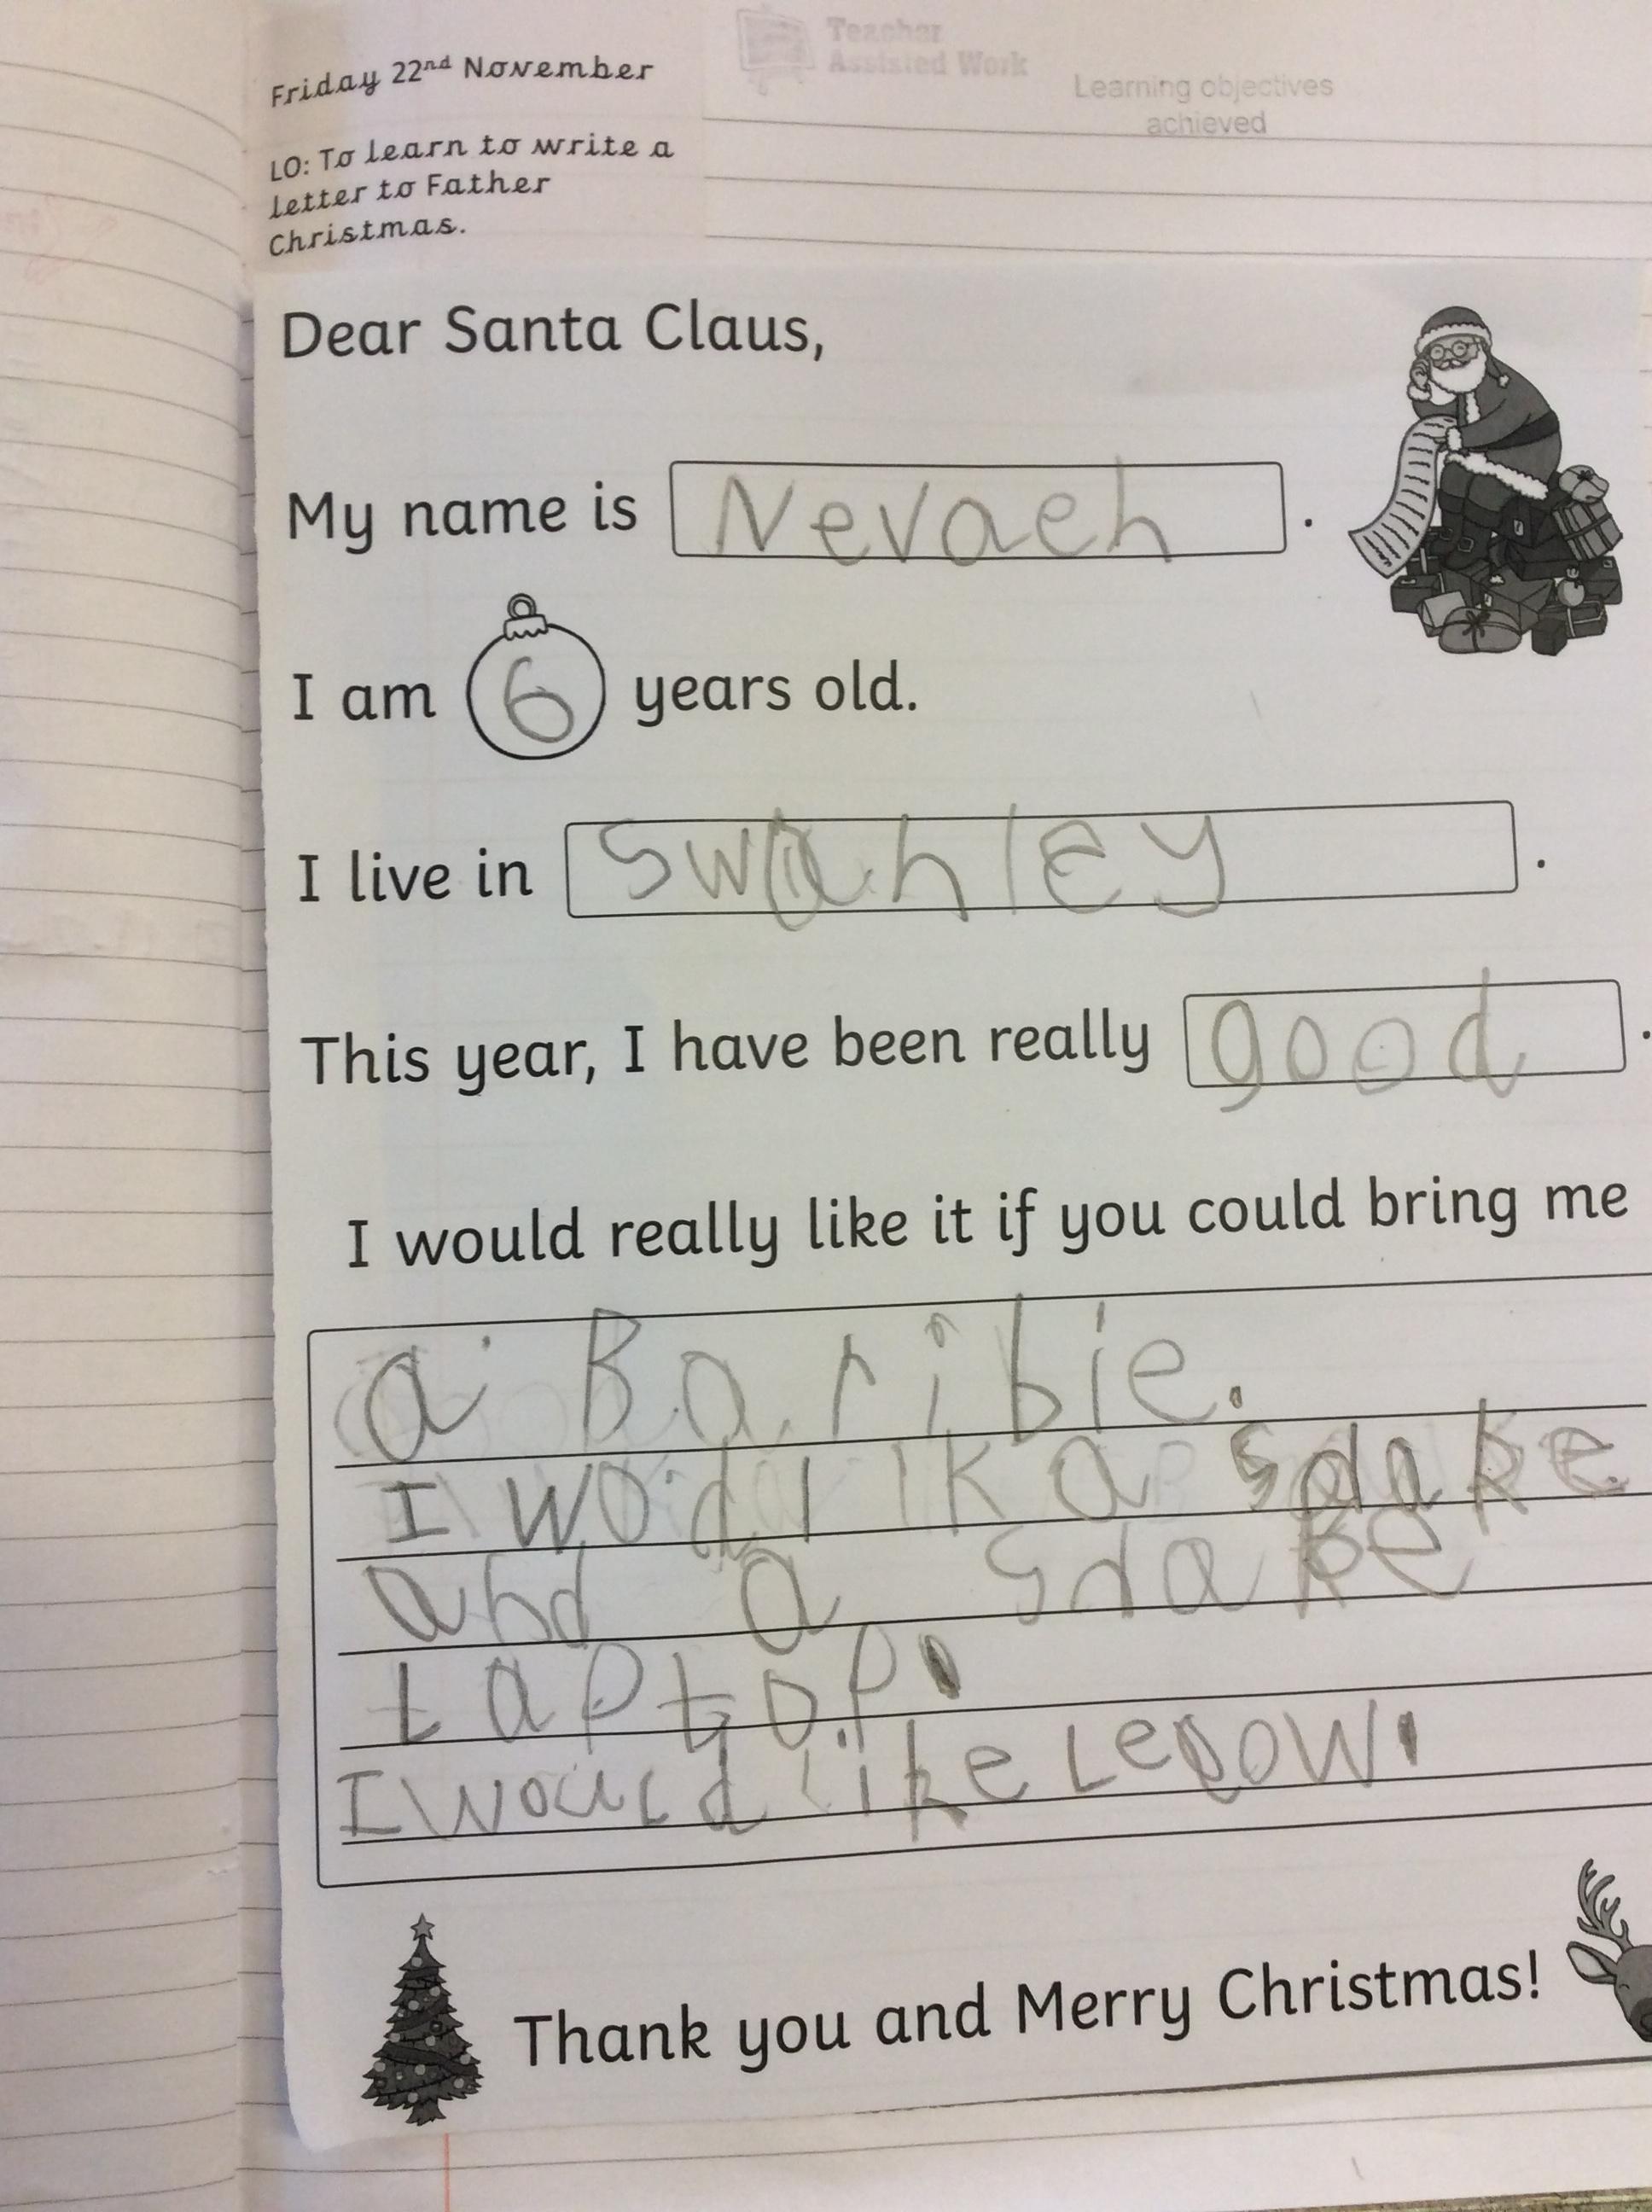 Friday 22nd November
Teacher
Assisted Work
Learning objectives
achieved
LO: To learn to write a
letter to Father
Christmas.
Dear Santa Claus,
My name is Nevaeh.
I am 6 years old.
I live in Swanley.
This year, I have been really good.
I would really like it if you could bring me
a Baribie.
I wod lik a sdake
and a sdake
laptop.
I would like Legow.
Thank you and Merry Christmas!